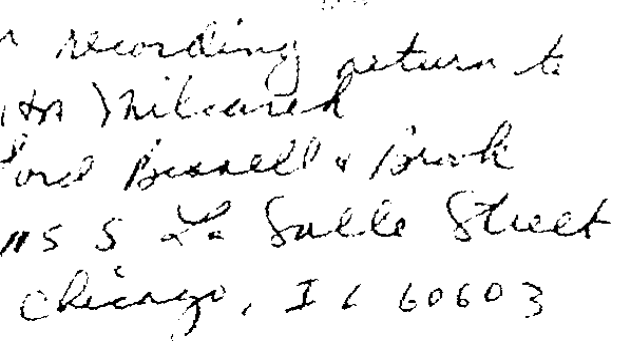 recording return to
Bissell & Brook
115 S La Salle Street
Chicago, IL 60603